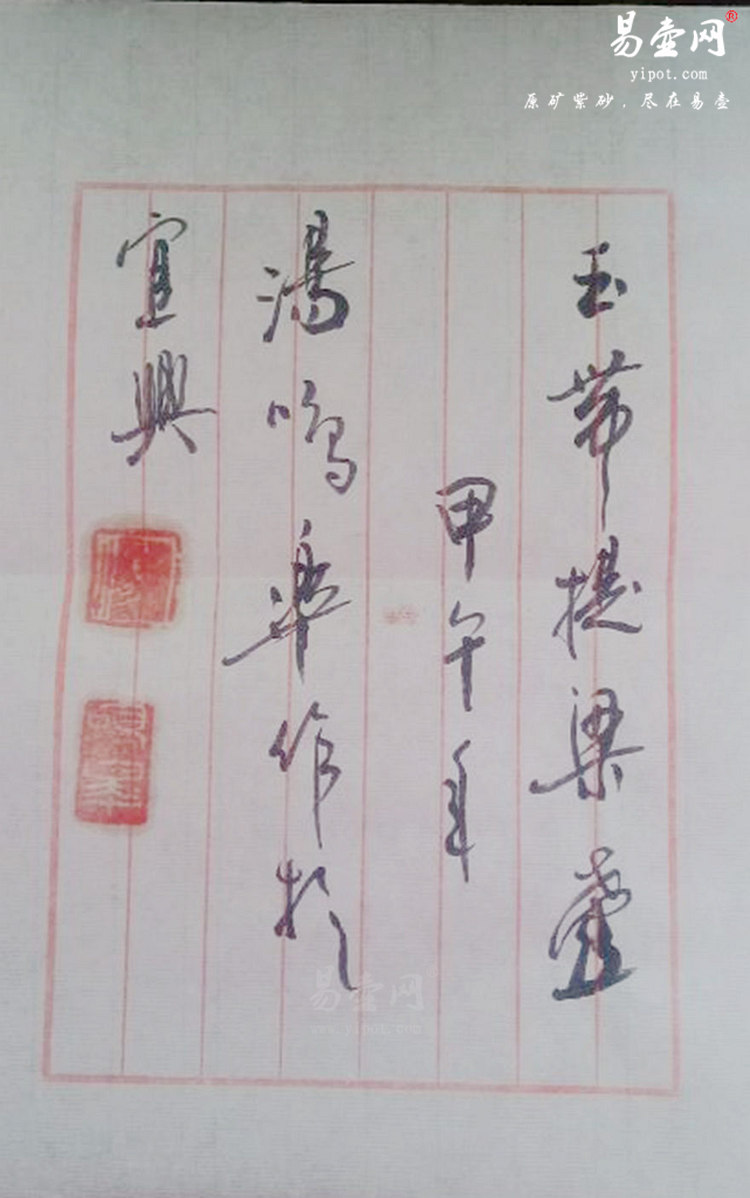 易壺网®
yipot.com
原矿紫砂，尽在易壺
玉帶提梁壺
甲午年
湯鸣皋作於
宜興
易壺网
www.yipot.com